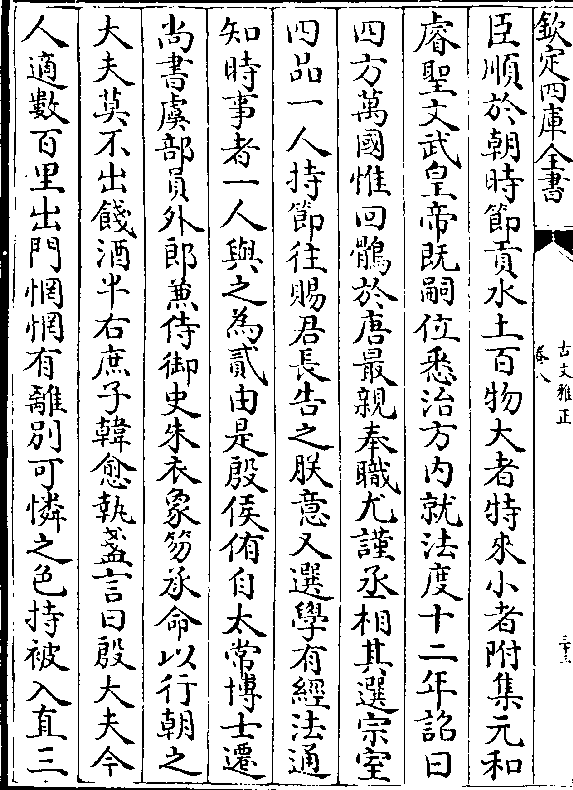 欽定四庫全書
古文雅正
卷八
三十三
臣順於朝時節貢水土百物大者特來小者附集元和
睿聖文武皇帝既嗣位悉治方内就法度十二年詔曰
四方萬國惟回鶻於唐最親奉職尤謹丞相其選宗室
四品一人持節往賜君長告之朕意又選學有經法通
知時事者一人與之為貳由是殷侯侑自太常博士遷
尚書虞部員外郎兼侍御史朱衣象笏承命以行朝之
大夫莫不出餞酒半右庶子韓愈執盞言曰殷大夫今
人適數百里出門惘惘有離别可憐之色持被入直三